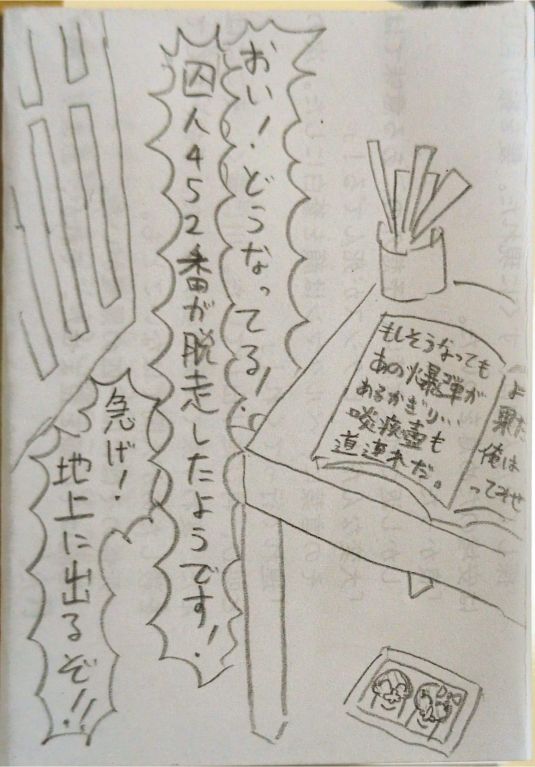 おい！どうなってる！
囚人452番が脱走したようです！
急げ！
地上に出るぞ！！
もしそうなっても
あの爆弾が
あるかぎり、、
啖痰壺も
道連れだ。
よ
果た
俺は
ってみせ